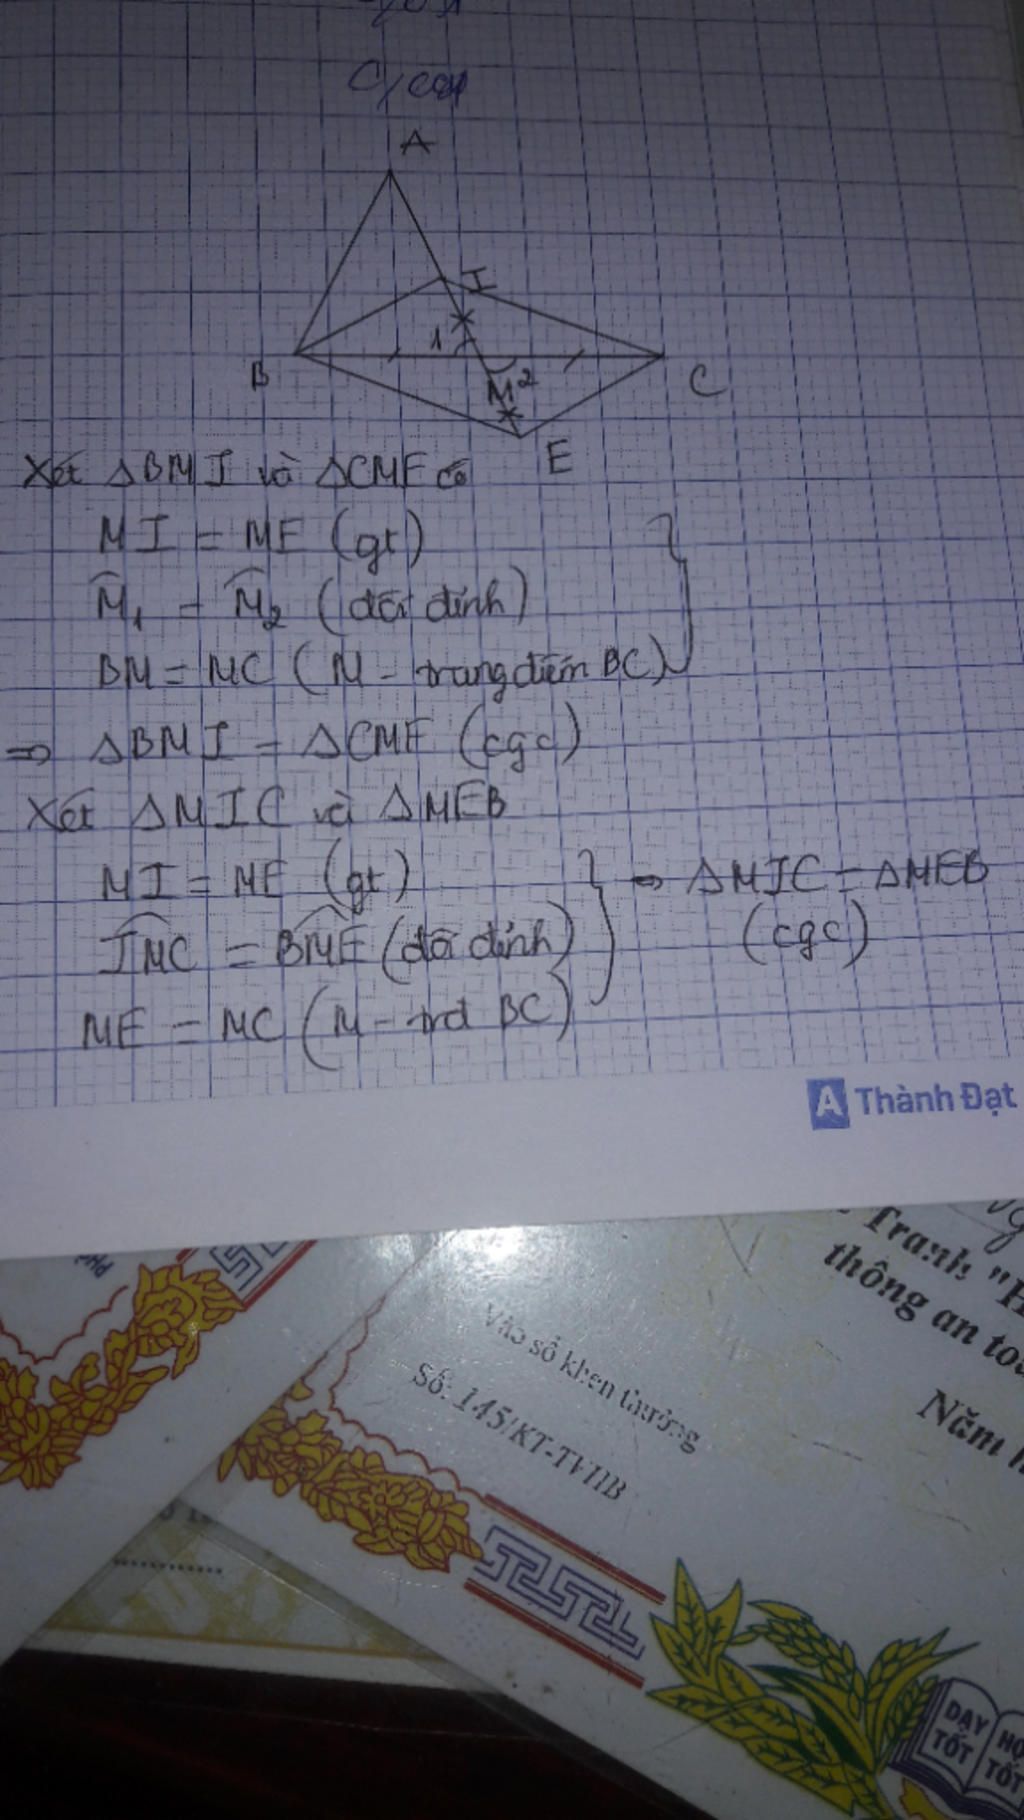 A
I
1
B
M 2
C
E
Xét △BMI và △CME có
MI = ME (gt)
M̂₁ = M̂₂ (đối đỉnh)
BM = MC (M - trung điểm BC)
⇒ △BMI = △CME (cgc)
Xét △MIC và △MEB
MI = ME (gt)
⇒ △MIC = △MEB
IMC = BME (đối đỉnh)
(cgc)
ME = MC (M - trđ BC)
A Thành Đạt
Tranh "H
thông an to
Vào sổ khen thưởng
Số: 145/KT-TVHB
Năm h
DẠY TỐT
HỌ TỐT